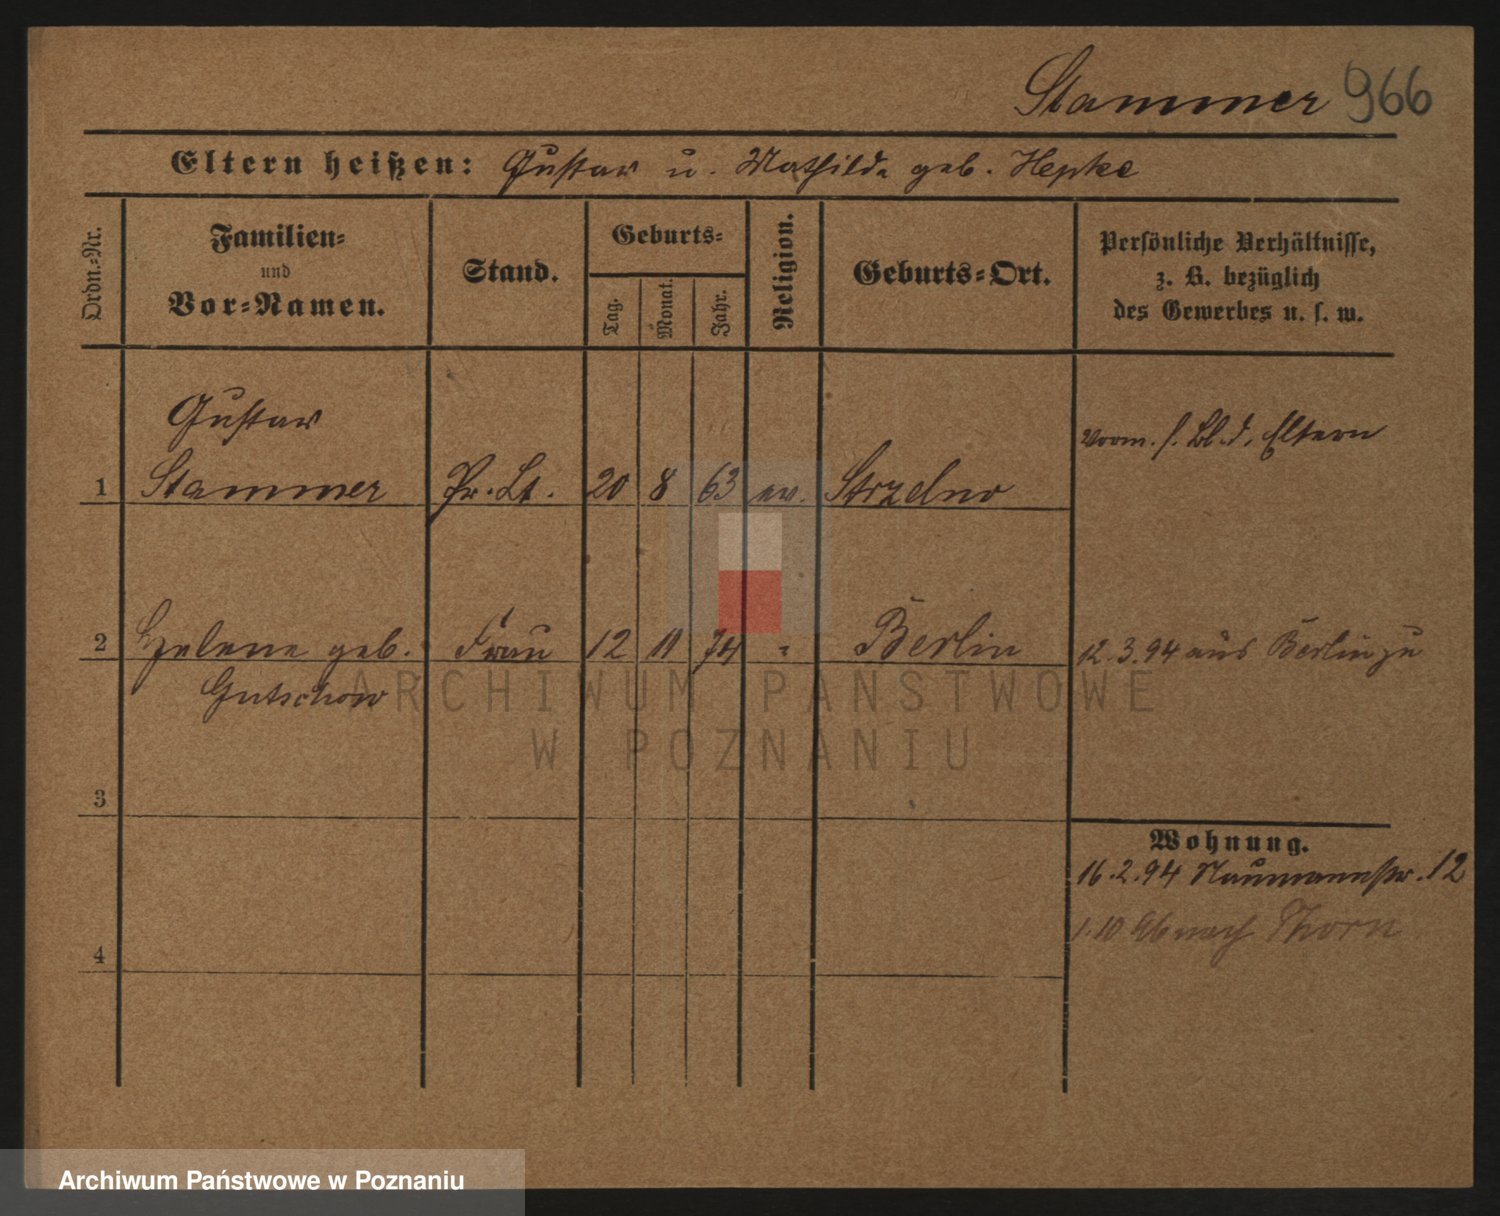 Stammer 966
Eltern heißen: Gustav u. Mathilde geb. Hepke
Ordn.-Nr.
Familien-
und
Vor-Namen.
Stand.
Geburts-
Tag.
Monat.
Jahr.
Religion.
Geburts-Ort.
Persönliche Verhältnisse,
z. B. bezüglich
des Gewerbes u. s. w.
Gustav
1 Stammer Pr. Lt. 20 8 63 ev. Strzelno
Vorm. s. Bl. d. Eltern
2 Helene geb. Frau 12 11 74 " Berlin 12.3.94 aus Berlin zu
Gutschow
3
4
Wohnung.
16.2.94 Naumannstr. 12
1.10 Ab nach Thorn
ARCHIWUM PAŃSTWOWE
W POZNANIU
Archiwum Państwowe w Poznaniu